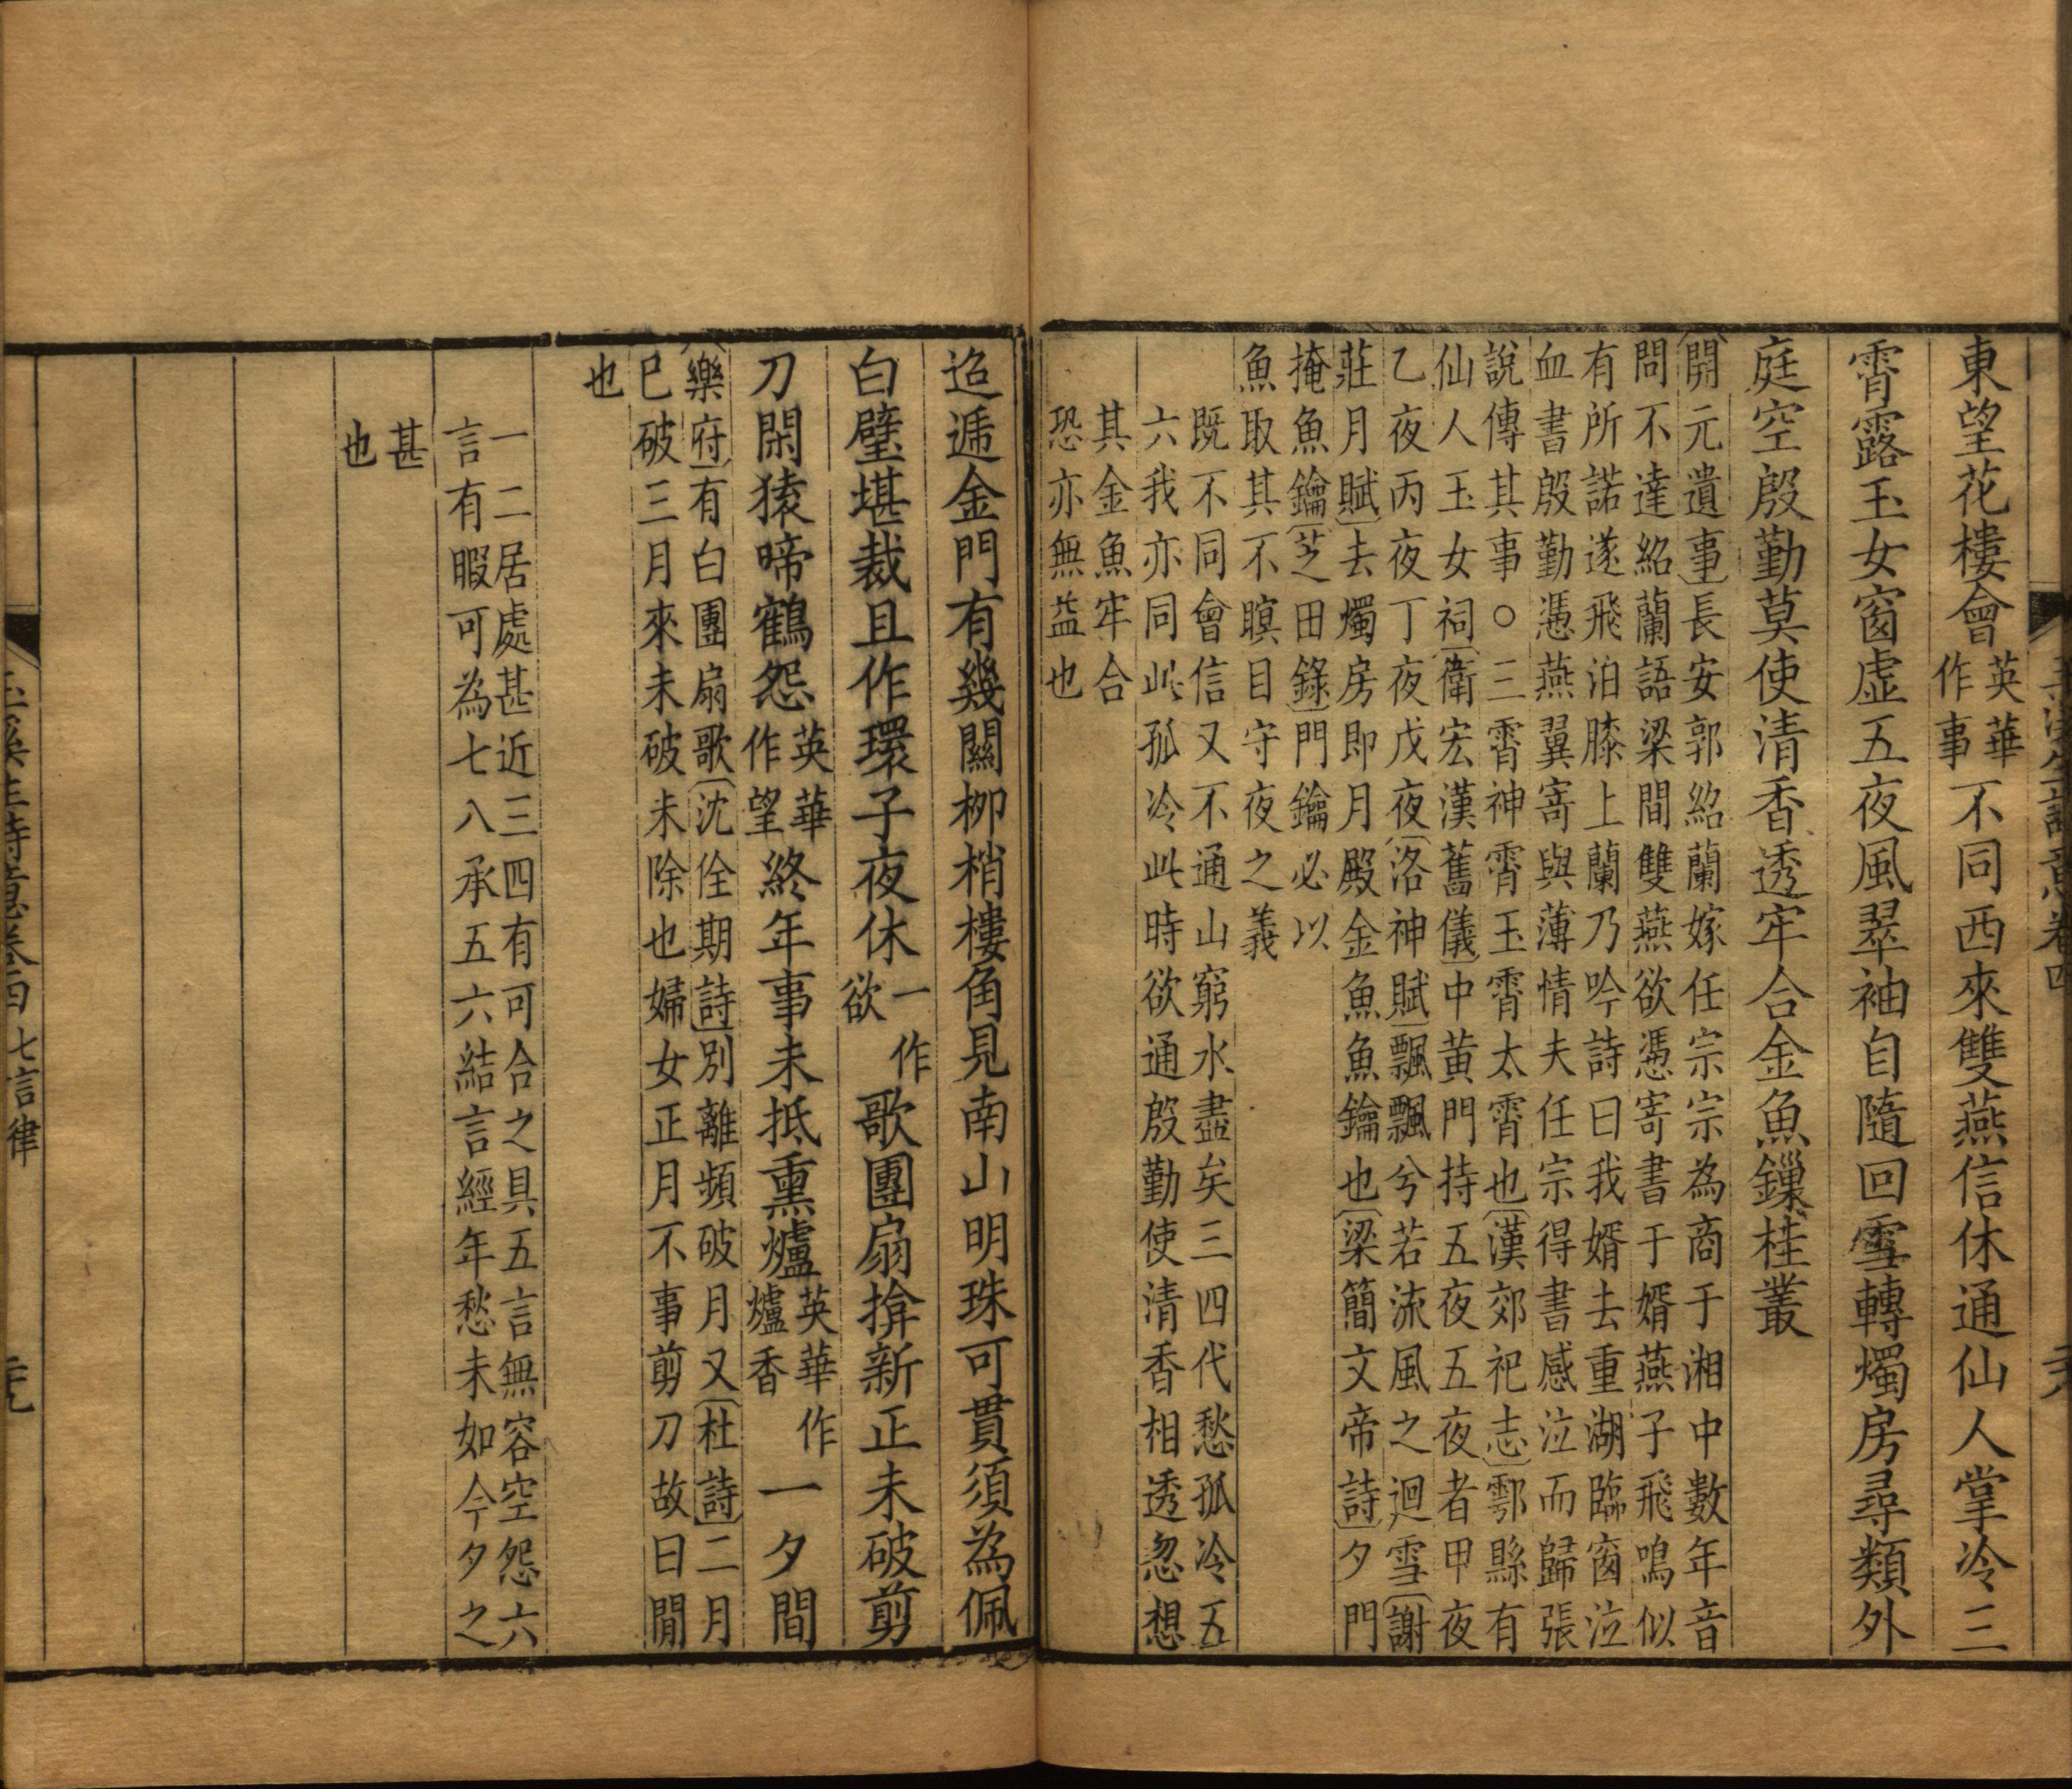 東望花樓會英華作事不同西來雙燕信休通仙人掌冷三
霄露玉女窗虛五夜風翠袖自隨回雪轉燭房尋類外
庭空殷勤莫使清香透牢合金魚鏁桂叢
開元遺事長安郭紹蘭嫁任宗宗為商于湘中數年音
問不達紹蘭語梁間雙燕欲憑寄書于婿燕子飛鳴似
有所諾遂飛泊膝上蘭乃吟詩曰我婿去重湖臨窗泣
血書殷勤憑燕翼寄與薄情夫任宗得書感泣而歸張
說傳其事○三霄神霄玉霄太霄也漢郊祀志鄠縣有
仙人玉女祠衛宏漢舊儀中黃門持五夜五夜者甲夜
乙夜丙夜丁夜戊夜洛神賦飄飄兮若流風之迴雪謝
莊月賦去燭房即月殿金魚魚鑰也梁簡文帝詩夕門
掩魚鑰芝田錄門鑰必以
魚取其不瞑目守夜之義
既不同會信又不通山窮水盡矣三四代愁孤冷五
六我亦同此孤冷此時欲通殷勤使清香相透忽想
其金魚牢合
恐亦無益也
迢遞金門有幾關柳梢樓角見南山明珠可貫須為佩
白璧堪裁且作環子夜休一作欲歌團扇揜新正未破剪
刀閑猿啼鶴怨英華作望終年事未抵熏爐英華作爐香一夕間
樂府有白團扇歌沈佺期詩別離頻破月又杜詩二月
巳破三月來未破未除也婦女正月不事剪刀故曰閒
也
一二居處甚近三四有可合之具五言無容空怨六
言有暇可為七八承五六結言經年愁未如今夕之
甚
也
七言律